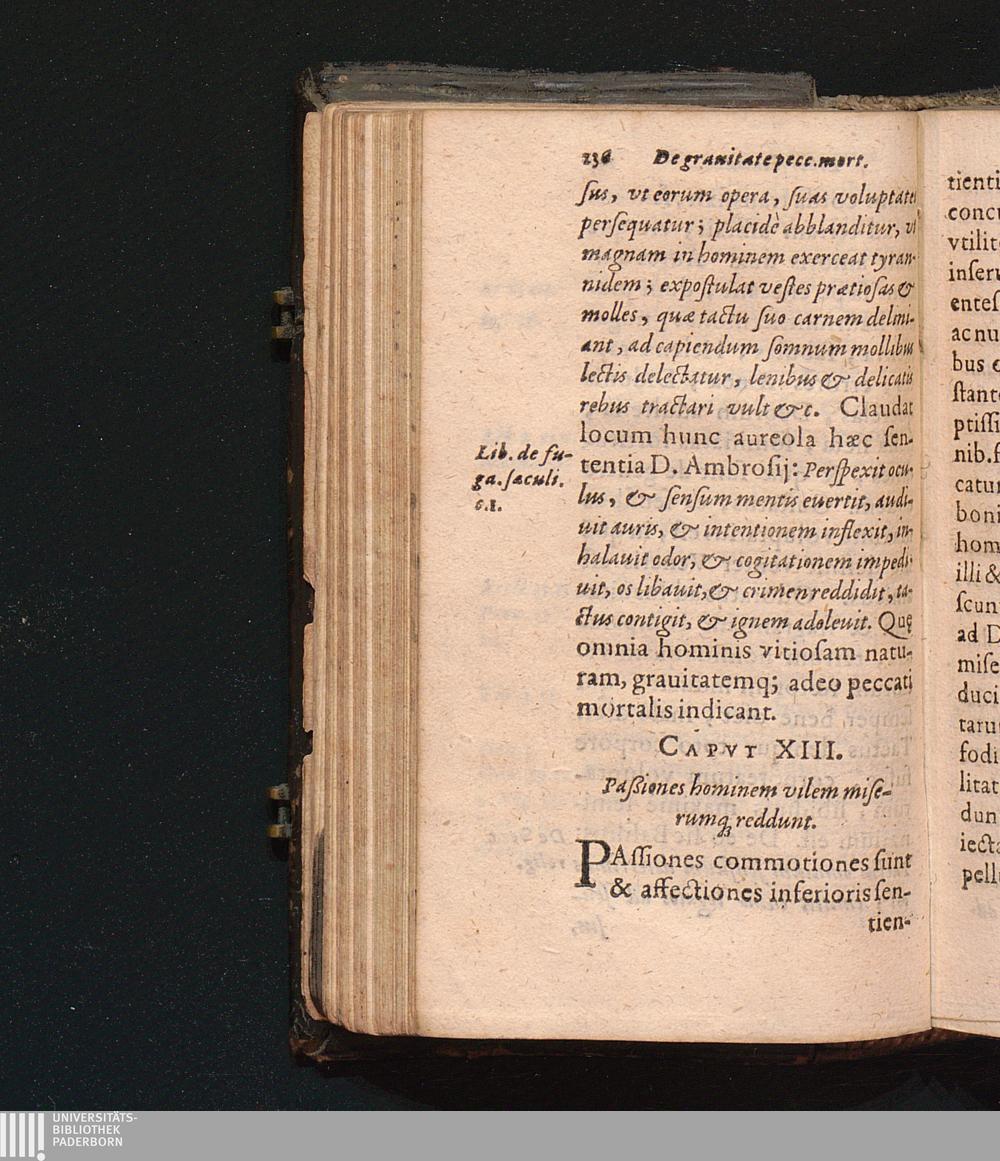 236 De grauitate pecc. mort.
ſus, vt eorum opera, ſuas voluptates
perſequatur; placidè abblanditur, vt
magnam in hominem exerceat tyran-
nidem; expoſtulat veſtes prætioſas &
molles, quæ tactu ſuo carnem delini-
ant, ad capiendum ſomnum mollibus
lectis delectatur, lenibus & delicatis
rebus tractari vult &c. Claudat
locum hunc aureola hæc ſen-
tentia D. Ambroſij: Perſpexit ocu-
lus, & ſenſum mentis euertit, audi-
uit auris, & intentionem inflexit, in-
halauit odor, & cogitationem impedi-
uit, os libauit, & crimen reddidit, ta-
ctus contigit, & ignem adoleuit. Quę
omnia hominis vitioſam natu-
ram, grauitatemq; adeo peccati
mortalis indicant.
Lib. de fu-
ga. ſæculi.
c.1.
CAPVT XIII.
Paſsiones hominem vilem miſe-
rumq́ reddunt.
PAſſiones commotiones ſunt
& affectiones inferioris ſen-
tien-
tienti
concu
vtilit
inſeru
enteſ
ac nu
bus
ſtant
ptiſſi
nib. f
catu
boni
hom
illi &
ſcun
ad D
miſe
duci
taru
fodi
litat
dun
iecta
pell
UNIVERSITÄTS-
BIBLIOTHEK
PADERBORN